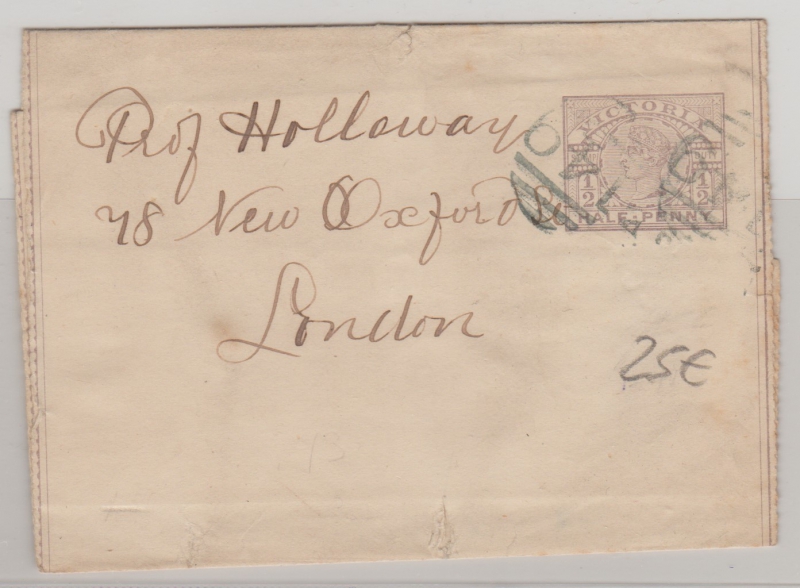 Prof Holloway
78 New Oxford St
London
VICTORIA
½ ½
HALF-PENNY
25€